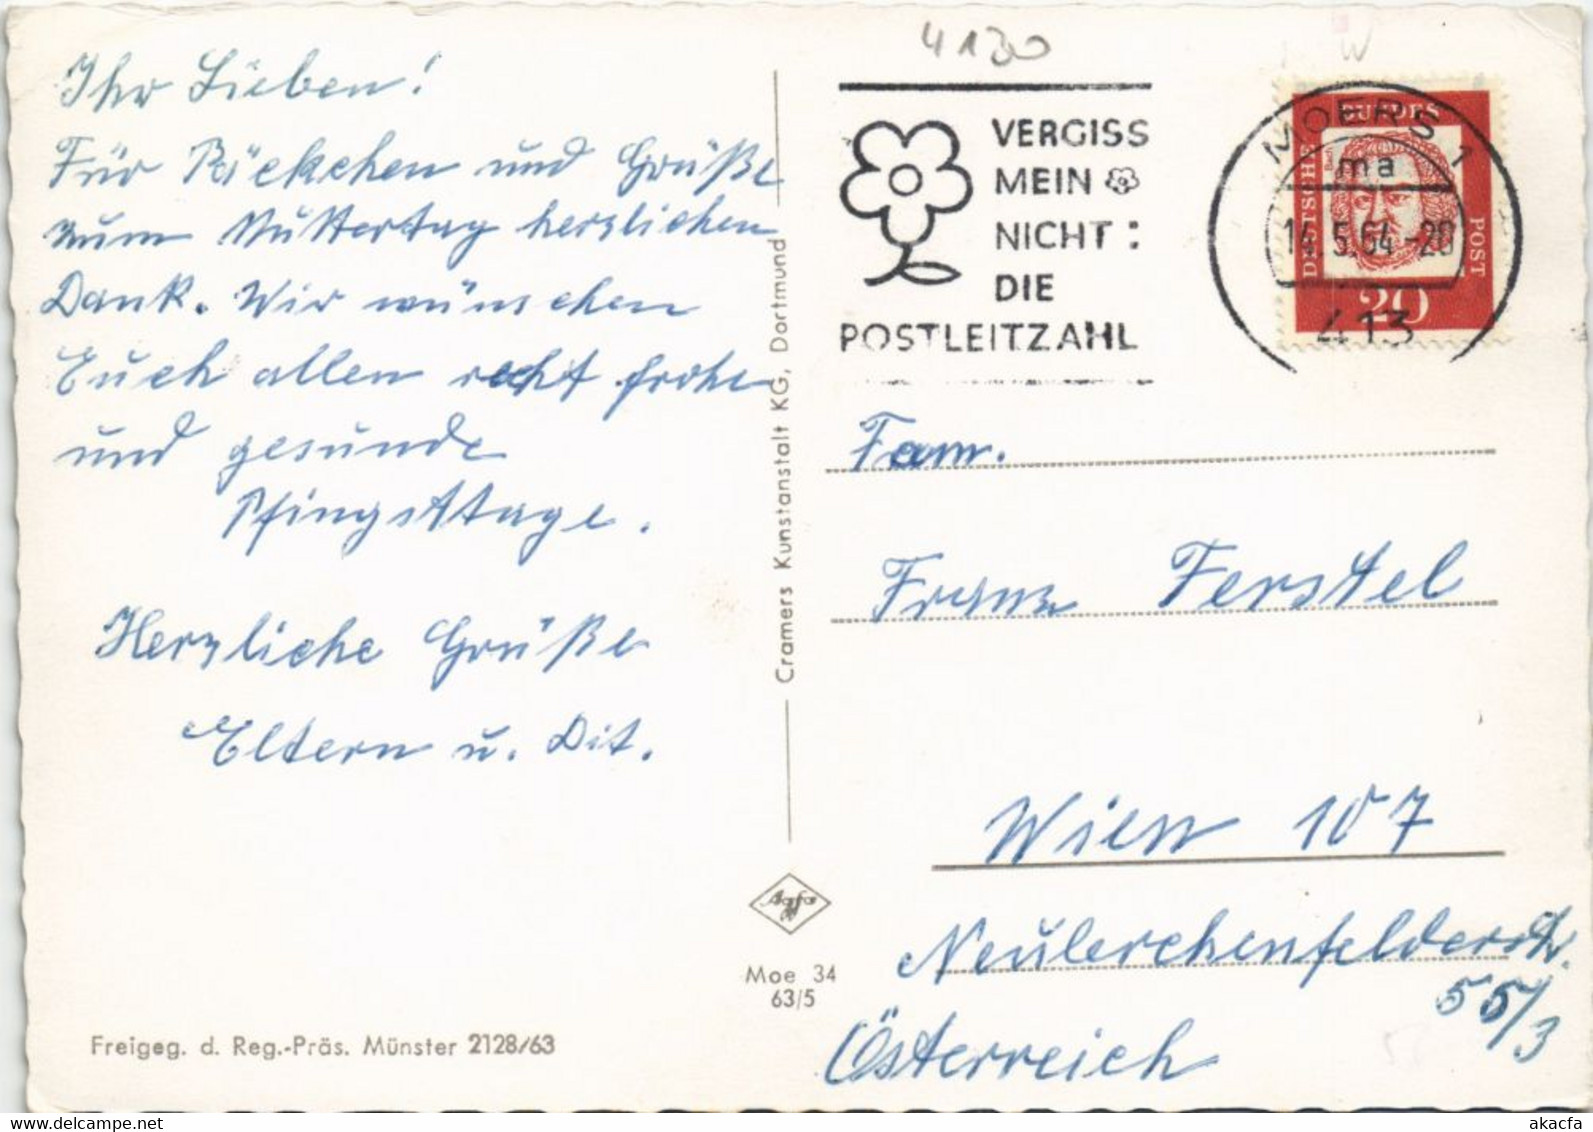 Ihr Lieben!
Für Päckchen und Grüße
zum Muttertag herzlichen
Dank. Wir wünschen
Euch allen recht frohe
und gesunde
Pfingsttage.
Herzliche Grüße
Eltern u. Dit.
Freigeg. d. Reg.-Präs. Münster 2128/63
Cramers Kunstanstalt KG, Dortmund
Agfa
Moe 34
63/5
4130
VERGISS
MEIN
NICHT:
DIE
POSTLEITZAHL
MOERS 1
ma
14.5.64-20
413
DEUTSCHE
BUNDES
POST
20
Fam.
Franz Ferstel
Wien 107
Neulerchenfelderstr.
55/3
Österreich
www.delcampe.net
akacfa